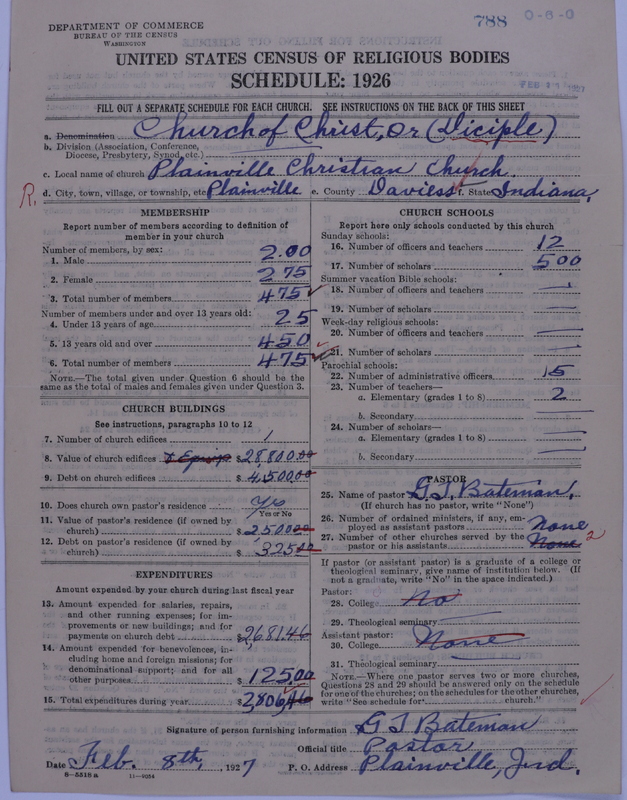 788 0-6-0
DEPARTMENT OF COMMERCE
BUREAU OF THE CENSUS
WASHINGTON
UNITED STATES CENSUS OF RELIGIOUS BODIES
SCHEDULE: 1926
FILL OUT A SEPARATE SCHEDULE FOR EACH CHURCH. SEE INSTRUCTIONS ON THE BACK OF THIS SHEET
a. Denomination Church of Christ, or (Diciple)
b. Division (Association, Conference,
Diocese, Presbytery, Synod, etc.)
c. Local name of church Plainville Christian Church
R. d. City, town, village, or township, etc. Plainville e. County Daviess f. State Indiana,
MEMBERSHIP
Report number of members according to definition of
member in your church
Number of members, by sex:
1. Male 2.00
2. Female 275
3. Total number of members 475
Number of members under and over 13 years old:
4. Under 13 years of age 25
5. 13 years old and over 450
6. Total number of members 475
NOTE.—The total given under Question 6 should be the
same as the total of males and females given under Question 3.
CHURCH BUILDINGS
See instructions, paragraphs 10 to 12
7. Number of church edifices 1
8. Value of church edifices & Equip $28,800.00
9. Debt on church edifices $4,500.00
10. Does church own pastor's residence yes
Yes or No
11. Value of pastor's residence (if owned by
church) $250000
12. Debt on pastor's residence (if owned by
church) $32500
EXPENDITURES
Amount expended by your church during last fiscal year
13. Amount expended for salaries, repairs,
and other running expenses; for im-
provements or new buildings; and for
payments on church debt $2681.46
14. Amount expended for benevolences, in-
cluding home and foreign missions; for
denominational support; and for all
other purposes $125.00
15. Total expenditures during year $2,806.46
CHURCH SCHOOLS
Report here only schools conducted by this church
Sunday schools:
16. Number of officers and teachers 12
17. Number of scholars 500
Summer vacation Bible schools:
18. Number of officers and teachers
19. Number of scholars
Week-day religious schools:
20. Number of officers and teachers
21. Number of scholars
Parochial schools:
22. Number of administrative officers 15
23. Number of teachers—
a. Elementary (grades 1 to 8) 2
b. Secondary
24. Number of scholars—
a. Elementary (grades 1 to 8)
b. Secondary
PASTOR
25. Name of pastor G.T. Bateman,
(If church has no pastor, write "None")
26. Number of ordained ministers, if any, em-
ployed as assistant pastors None
27. Number of other churches served by the
pastor or his assistants None 2
If pastor (or assistant pastor) is a graduate of a college or
theological seminary, give name of institution below. (If
not a graduate, write "No" in the space indicated.)
Pastor:
28. College No
29. Theological seminary
Assistant pastor:
30. College None
31. Theological seminary
NOTE.—Where one pastor serves two or more churches,
Questions 28 and 29 should be answered only on the schedule
for one of the churches; on the schedules for the other churches,
write "See schedule for church."
Signature of person furnishing information G T Bateman
Official title Pastor
Date Feb. 8th, 1927 P. O. Address Plainville, Ind.
6-5518 a 11-9054